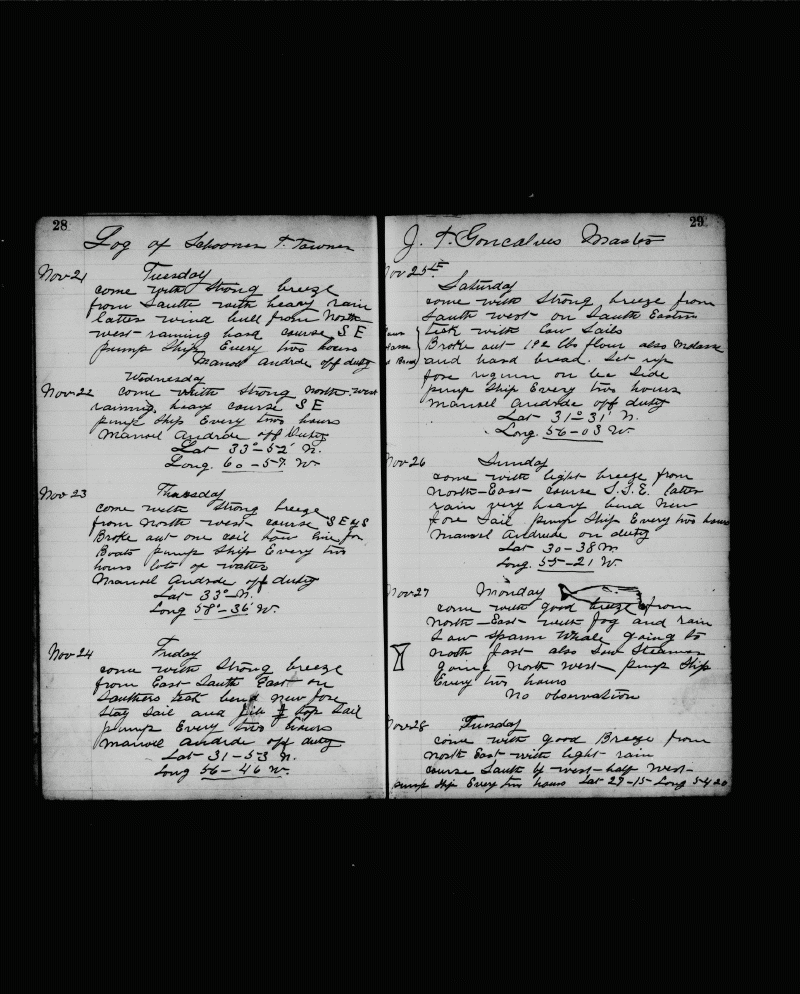 28
Log of Schooner T. Towner
Nov 21 Tuesday
come with strong breeze
from South with heavy rain
latter wind hull from North
west raining hard course S E
pump ship Every two hours
Manoel Andrde off duty
Wednesday
Nov 22 come with strong North-west
raining heavy course S E
pump ship Every two hours
Manoel Andrde off Duty
Lat 33°-52' N.
Long. 60-57 W.
Nov 23 Thursday
come with strong breeze
from North west course S E by S
Broke out one coil tow line for
Boats pump ship Every two
hours lots of water
Manoel Andrde off duty
Lat 33°-N.
Long 58°-36' W.
Nov 24 Friday
come with strong breeze
from East South East on
Southers teck bend new fore
stay sail and jib & top sail
pump Every two hours
Manoel Andrde off duty
Lat-31-53 N.
Long 56-46 W.
29
J. T. Goncalves Master
Nov 25th
Saturday
come with strong breeze from
South west on South Eastin
teck with Low Sails
Broke out 192 lbs flour also Molasse
and hard bread. Set up
fore on be side
pump ship Every two hours
Manoel Andrde off duty
Lat 31°31' N.
Long. 56-03 W.
Nov 26 Sunday
come with light breeze from
North-East course S.S.E. latter
rain very heavy bend New
fore Sail pump ship Every two hours
Manoel Andrde on duty
Lat 30-38 N.
Long. 55-21 W.
Nov 27 Monday
come with good breeze from
North-East with fog and rain
Saw sparm Whale going to
North fast also Saw Steamer
going North west pump ship
Every two hours
No observation
Nov 28 Tuesday
come with good Breeze from
North East with light rain
course South by west-half West-
pump ship Every two hours Lat 29-15 Long 54 20